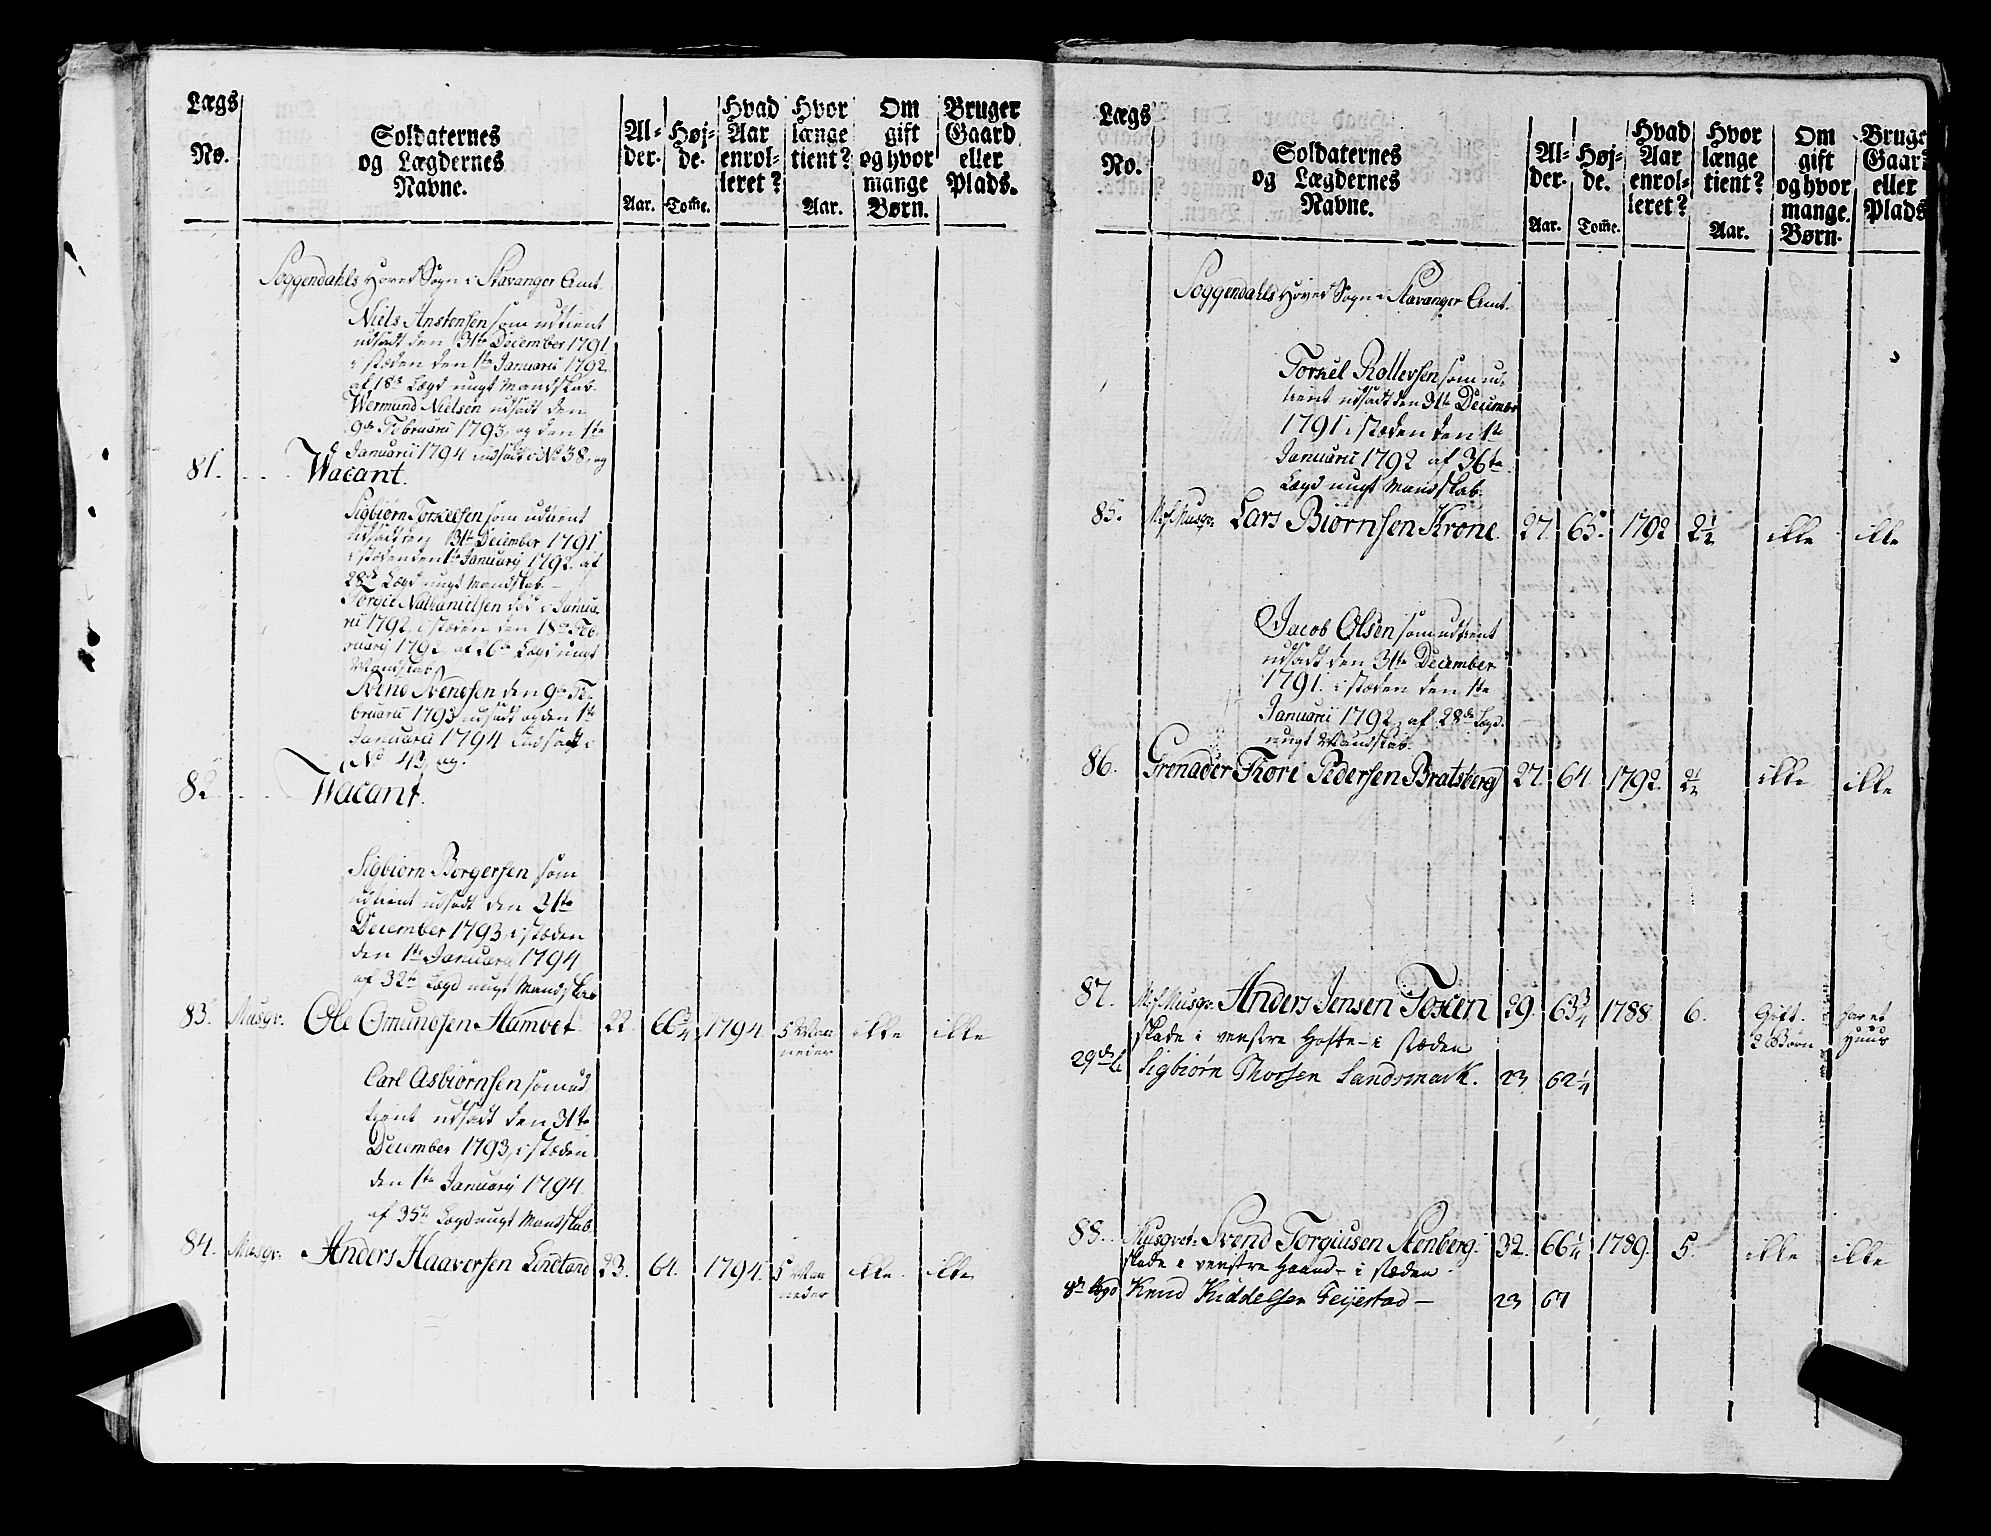 Lægs
No.
Soldaternes
og Lægdernes
Navne.
Al-
der.
Aar.
Høj-
de.
Tom̃e.
Hvad
Aar
enrol-
leret?
Hvor
længe
tient?
Aar.
Om
gift
og hvor
mange
Børn.
Bruger
Gaard
eller
Plads.
Soggendahls Hoved Sogn i Stavanger Amt.
Niels Anstensen som udtient
udsadt den 31te December 1791
i stæden den 1te Januarii 1792
af 18de Lægd ungt Mandskab.
Wermund Nielsen udsadt den
9de Februarii 1793, og den 1te
Januarii 1794 indsadt i No 38, og
81. Wacant.
Sigbiørn Torkelsen som udtient
udsadt den 31te December 1791
i stæden den 1te Januarij 1792 af
28de Lægd ungt Mandskab.
Torgie Nathanielsen død i Janua-
rii 1792, i stæden den 18de Feb-
ruarij 1792 af 26de Lægd ungt
Mandskab
Svend Svendsen den 9de Fe-
bruarii 1793 udsadt og den 1te
Januarii 1794 indsadt i
No 43, og.
82. Wacant.
Sigbiørn Borgersen som
udtient udsadt den 31te
December 1793, i stæden
den 1te Januarii 1794
af 32te Lægd ungt Mandskab
83. Musqr. Ole Omundsen Hamvet 22. 66 3/4 1794. 5 Maaneder ikke ikke
Carl Asbiørnsen som ud
tient udsadt den 31te
December 1793, i stæden
den 1te Januarij 1794
af 35te Lægd ungt Mandskab
84. Musqr. Anders Haaversen Lindland 23. 64. 1794. 5 Maaneder ikke. ikke
Lægs
No.
Soldaternes
og Lægdernes
Navne.
Al-
der.
Aar.
Høj-
de.
Tom̃e.
Hvad
Aar
enrol-
leret?
Hvor
længe
tient?
Aar.
Om
gift
og hvor
mange
Børn.
Bruge
Gaard
eller
Plads
Soggendahls Hoved Sogn i Stavanger Amt.
Torkel Rollevsen som ud-
tient udsadt den 31te December
1791 i stæden den 1te
Januarii 1792 af 36te
Lægd ungt Mandskab.
85. Musqr. Lars Biørnsen Krone. 27. 65. 1792 2 1/2 ikke ikke
Jacob Olsen som udtient
udsadt den 31te December
1791. i stæden den 1te
Januarii 1792, af 28de Lægd.
ungt Mandskab.
86. Grenader Thore Pedersen Bratsberg 27. 64 1792. 2 1/2 ikke ikke
87. Musqr. Anders Jensen Toxen 29. 63 3/4 1788 6. Gift. 2 Børn har et Huus
skade i venstre Hofte i stæden
29de L. Sigbiørn Thorsen Sandsmark. 23 62 1/4
88. Musqvt: Svend Torgiusen Stenberg. 32. 66 1/4 1789. 5. ikke ikke
skade i venstre Haand i stæden
8de Lægd Knud Kiddelsen Feijestad 23 67